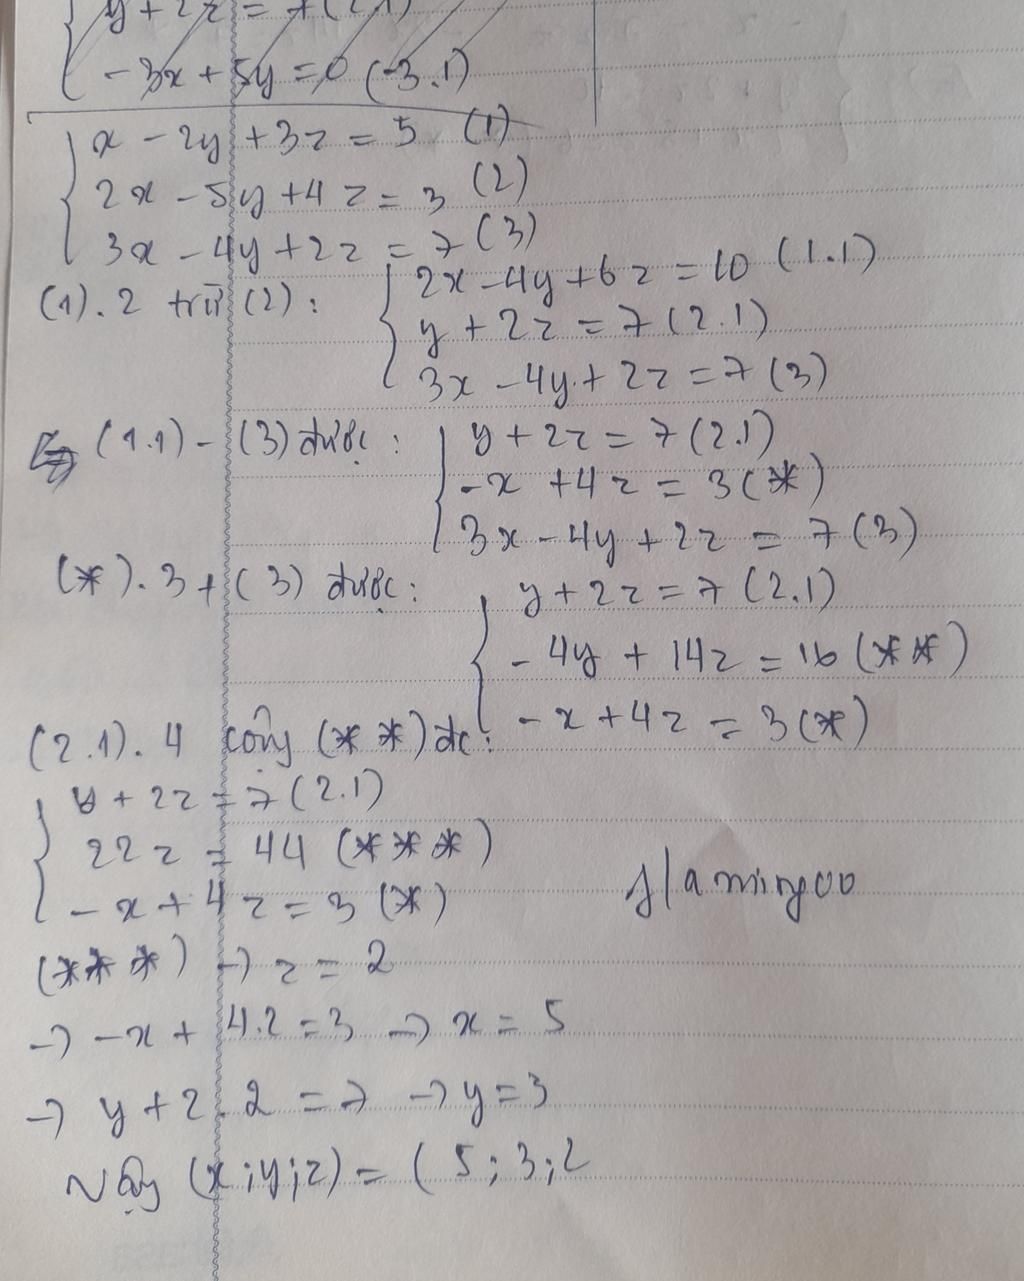 y + 2z = 7 (2.1)
-3x + 5y = 0 (-3.1)
x - 2y + 3z = 5 (1)
2x - 5y + 4z = 3 (2)
3x - 4y + 2z = 7 (3)
(1).2 trừ (2):
2x - 4y + 6z = 10 (1.1)
y + 2z = 7 (2.1)
3x - 4y + 2z = 7 (3)
(1.1) - (3) được:
y + 2z = 7 (2.1)
-x + 4z = 3 (*)
3x - 4y + 2z = 7 (3)
(*).3 + (3) được:
y + 2z = 7 (2.1)
-4y + 14z = 16 (**)
-x + 4z = 3 (*)
(2.1).4 cộng (**) đc:
y + 2z = 7 (2.1)
22z = 44 (***)
-x + 4z = 3 (*)
flamingoo
(***) → z = 2
→ -x + 4.2 = 3 → x = 5
→ y + 2.2 = 7 → y = 3
Vậy (x;y;z) = (5;3;2